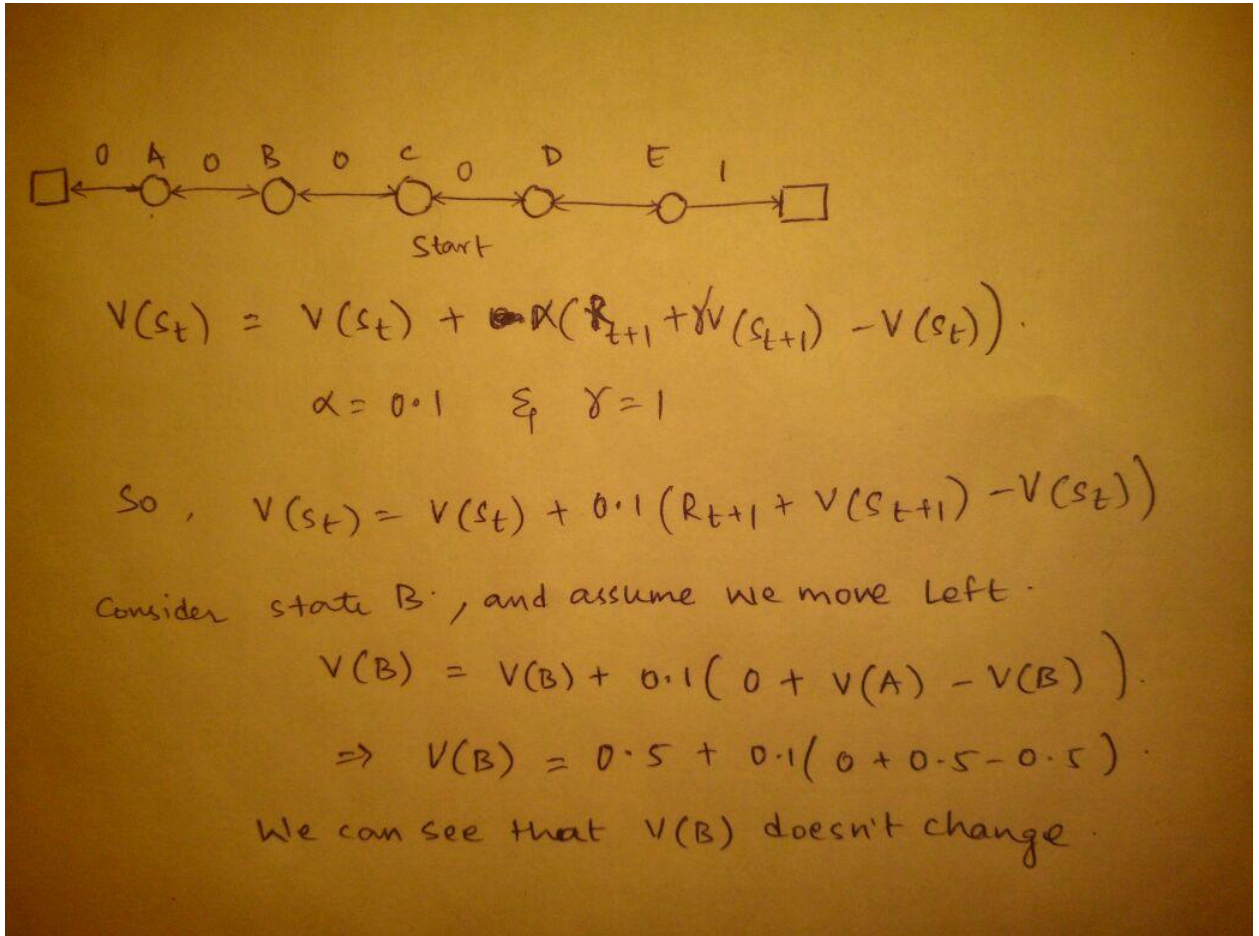 0 A 0 B 0 C 0 D E 1
Start
V(St) = V(St) + α(Rt+1 + γV(St+1) - V(St)).
α = 0.1 & γ = 1
So, V(St) = V(St) + 0.1(Rt+1 + V(St+1) - V(St))
Consider state B, and assume we move Left.
V(B) = V(B) + 0.1(0 + V(A) - V(B)).
⇒ V(B) = 0.5 + 0.1(0 + 0.5 - 0.5).
We can see that V(B) doesn't change.